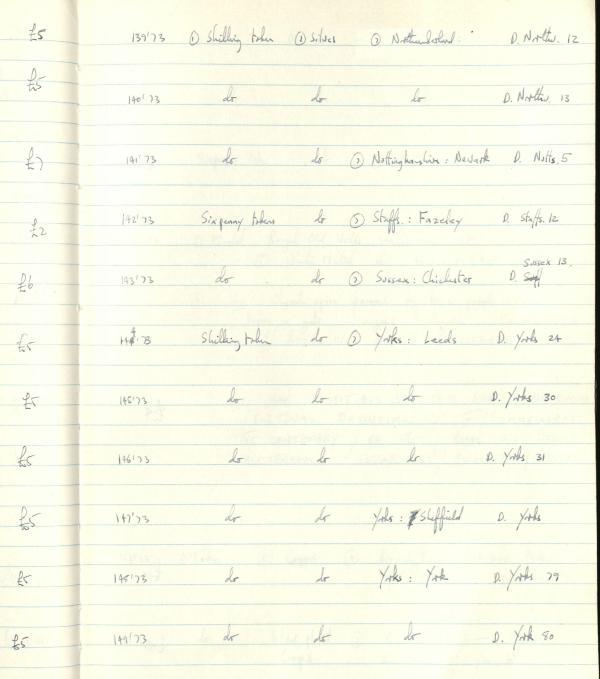 £5 139'73 ① Shilling token ② Silver ③ Northumberland. D. Northu. 12
£5 140'73 do do do D. Northu. 13
£7 141'73 do do ③ Nottinghamshire : Newark D. Notts. 5
£2 142'73 Sixpenny token do ③ Staffs. : Fazeley D. Staffs. 12
Sussex 13.
£6 143'73 do do ③ Sussex : Chichester D.
£5 144'73 Shilling token do ③ Yorks : Leeds D. Yorks 24
£5 145'73 do do do D. Yorks 30
£5 146'73 do do do D. Yorks 31
£5 147'73 do do Yorks : Sheffield D. Yorks
£5 148'73 do do Yorks : York D. Yorks 79
£5 149'73 do do do D. York 80